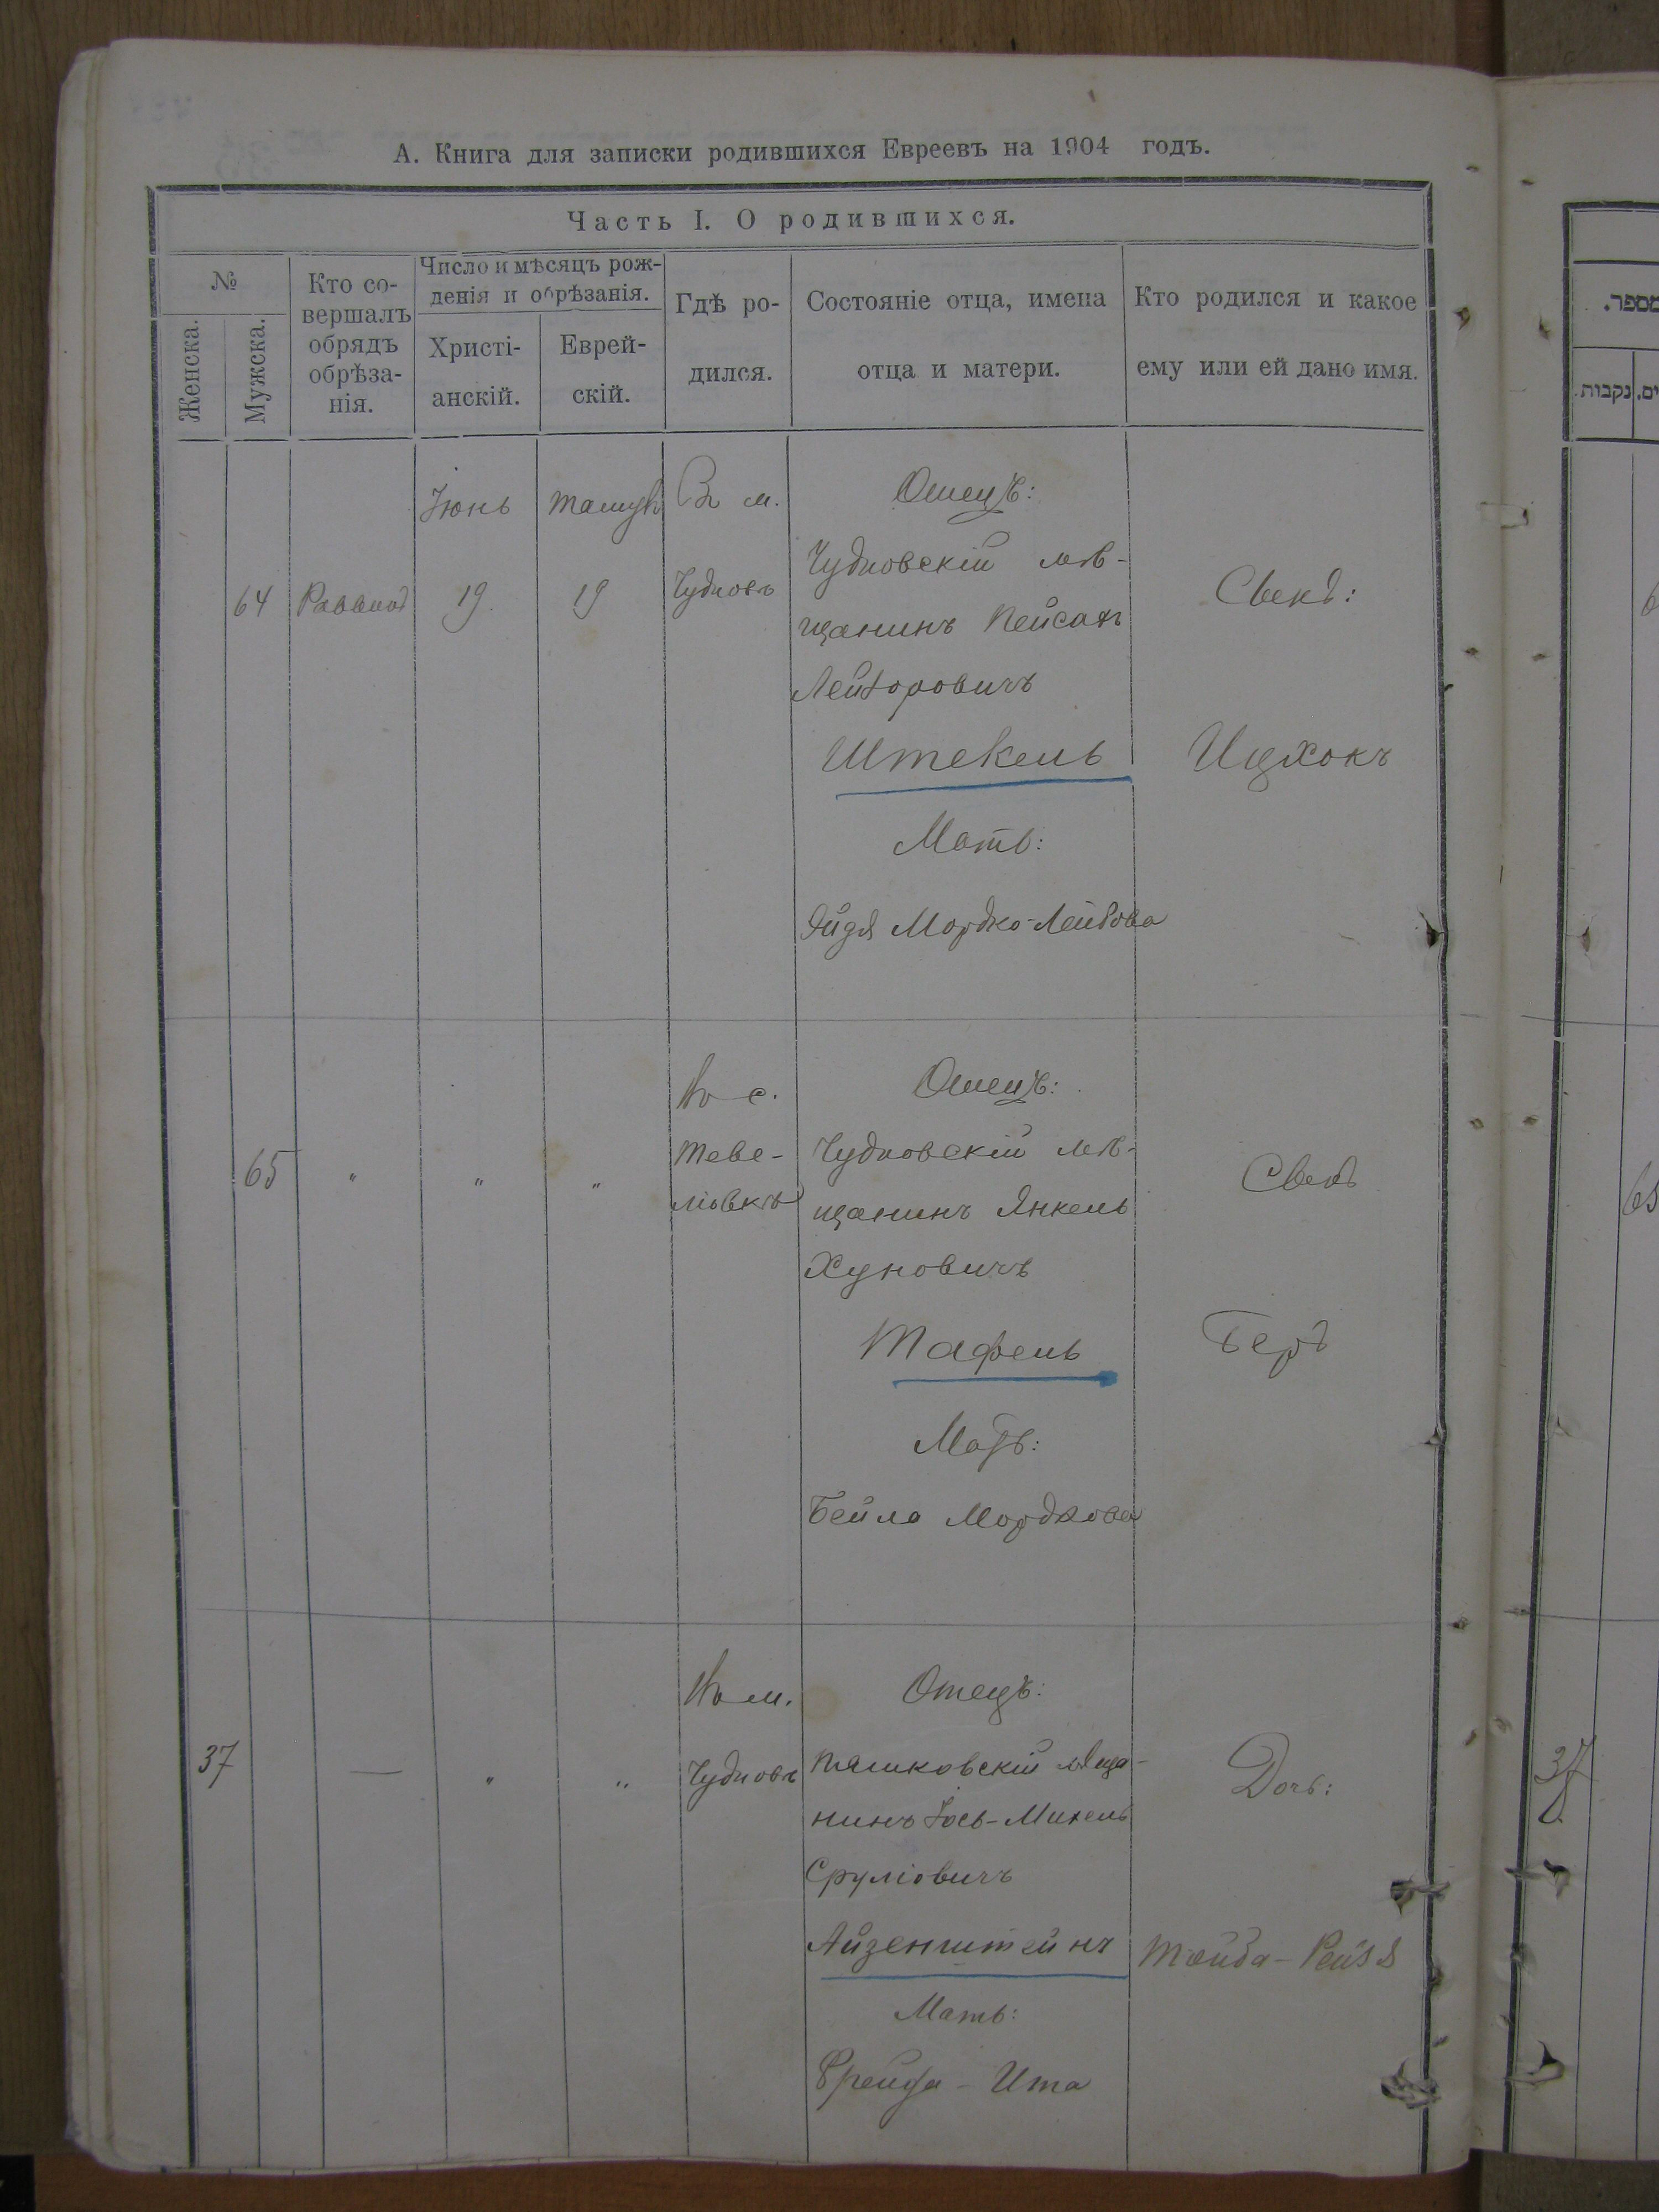 А. Книга для записки родившихся Евреевъ на 1904 годъ.
Часть I. О родившихся.
№
Женска.
Мужска.
Кто со-
вершалъ
обрядъ
обрѣза-
нія.
Число и мѣсяцъ рож-
денія и обрѣзанія.
Христі-
анскій.
Еврей-
скій.
Гдѣ ро-
дился.
Состояніе отца, имена
отца и матери.
Кто родился и какое
ему или ей дано имя.
64
Іюнь
19
19
Въ м.
Чудновъ
Отецъ:
Чудновскій мѣ-
щанинъ Пейсах
Лейзоровичъ
Штекель
Мать:
Мордко-Лейбова
Ицхокъ
65
"
"
"
Въ с.
Теве-
лювкѣ
Отецъ:
Чудновскій мѣ-
щанинъ Янкель
Хуновичъ
Тафель
Мать:
Бейла Мордкова
Беръ
37
—
"
"
Въ м.
Чудновъ
Отецъ:
мѣща-
нинъ Іось-Михель
Сруліовичъ
Айзенштейнъ
Мать:
Фрейда - Ита
Дочь:
מספר.
נקבות
65
37